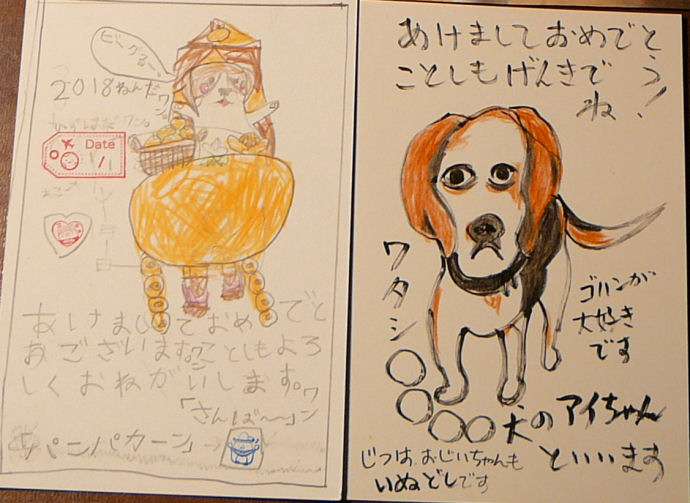 ビーグる。
2018ねんだワン
Date
1
あけましておめでと
おございます。ワンことしもよろ
しくおねがいします。ワン
「さんば〜〜」
「パンパカーン」
あけましておめでとう!
ことしもげんきで
ね
ワタシ
ゴハンが
大好き
です
犬のアイちゃん
といいます
じつは、おじいちゃんも
いぬどしです